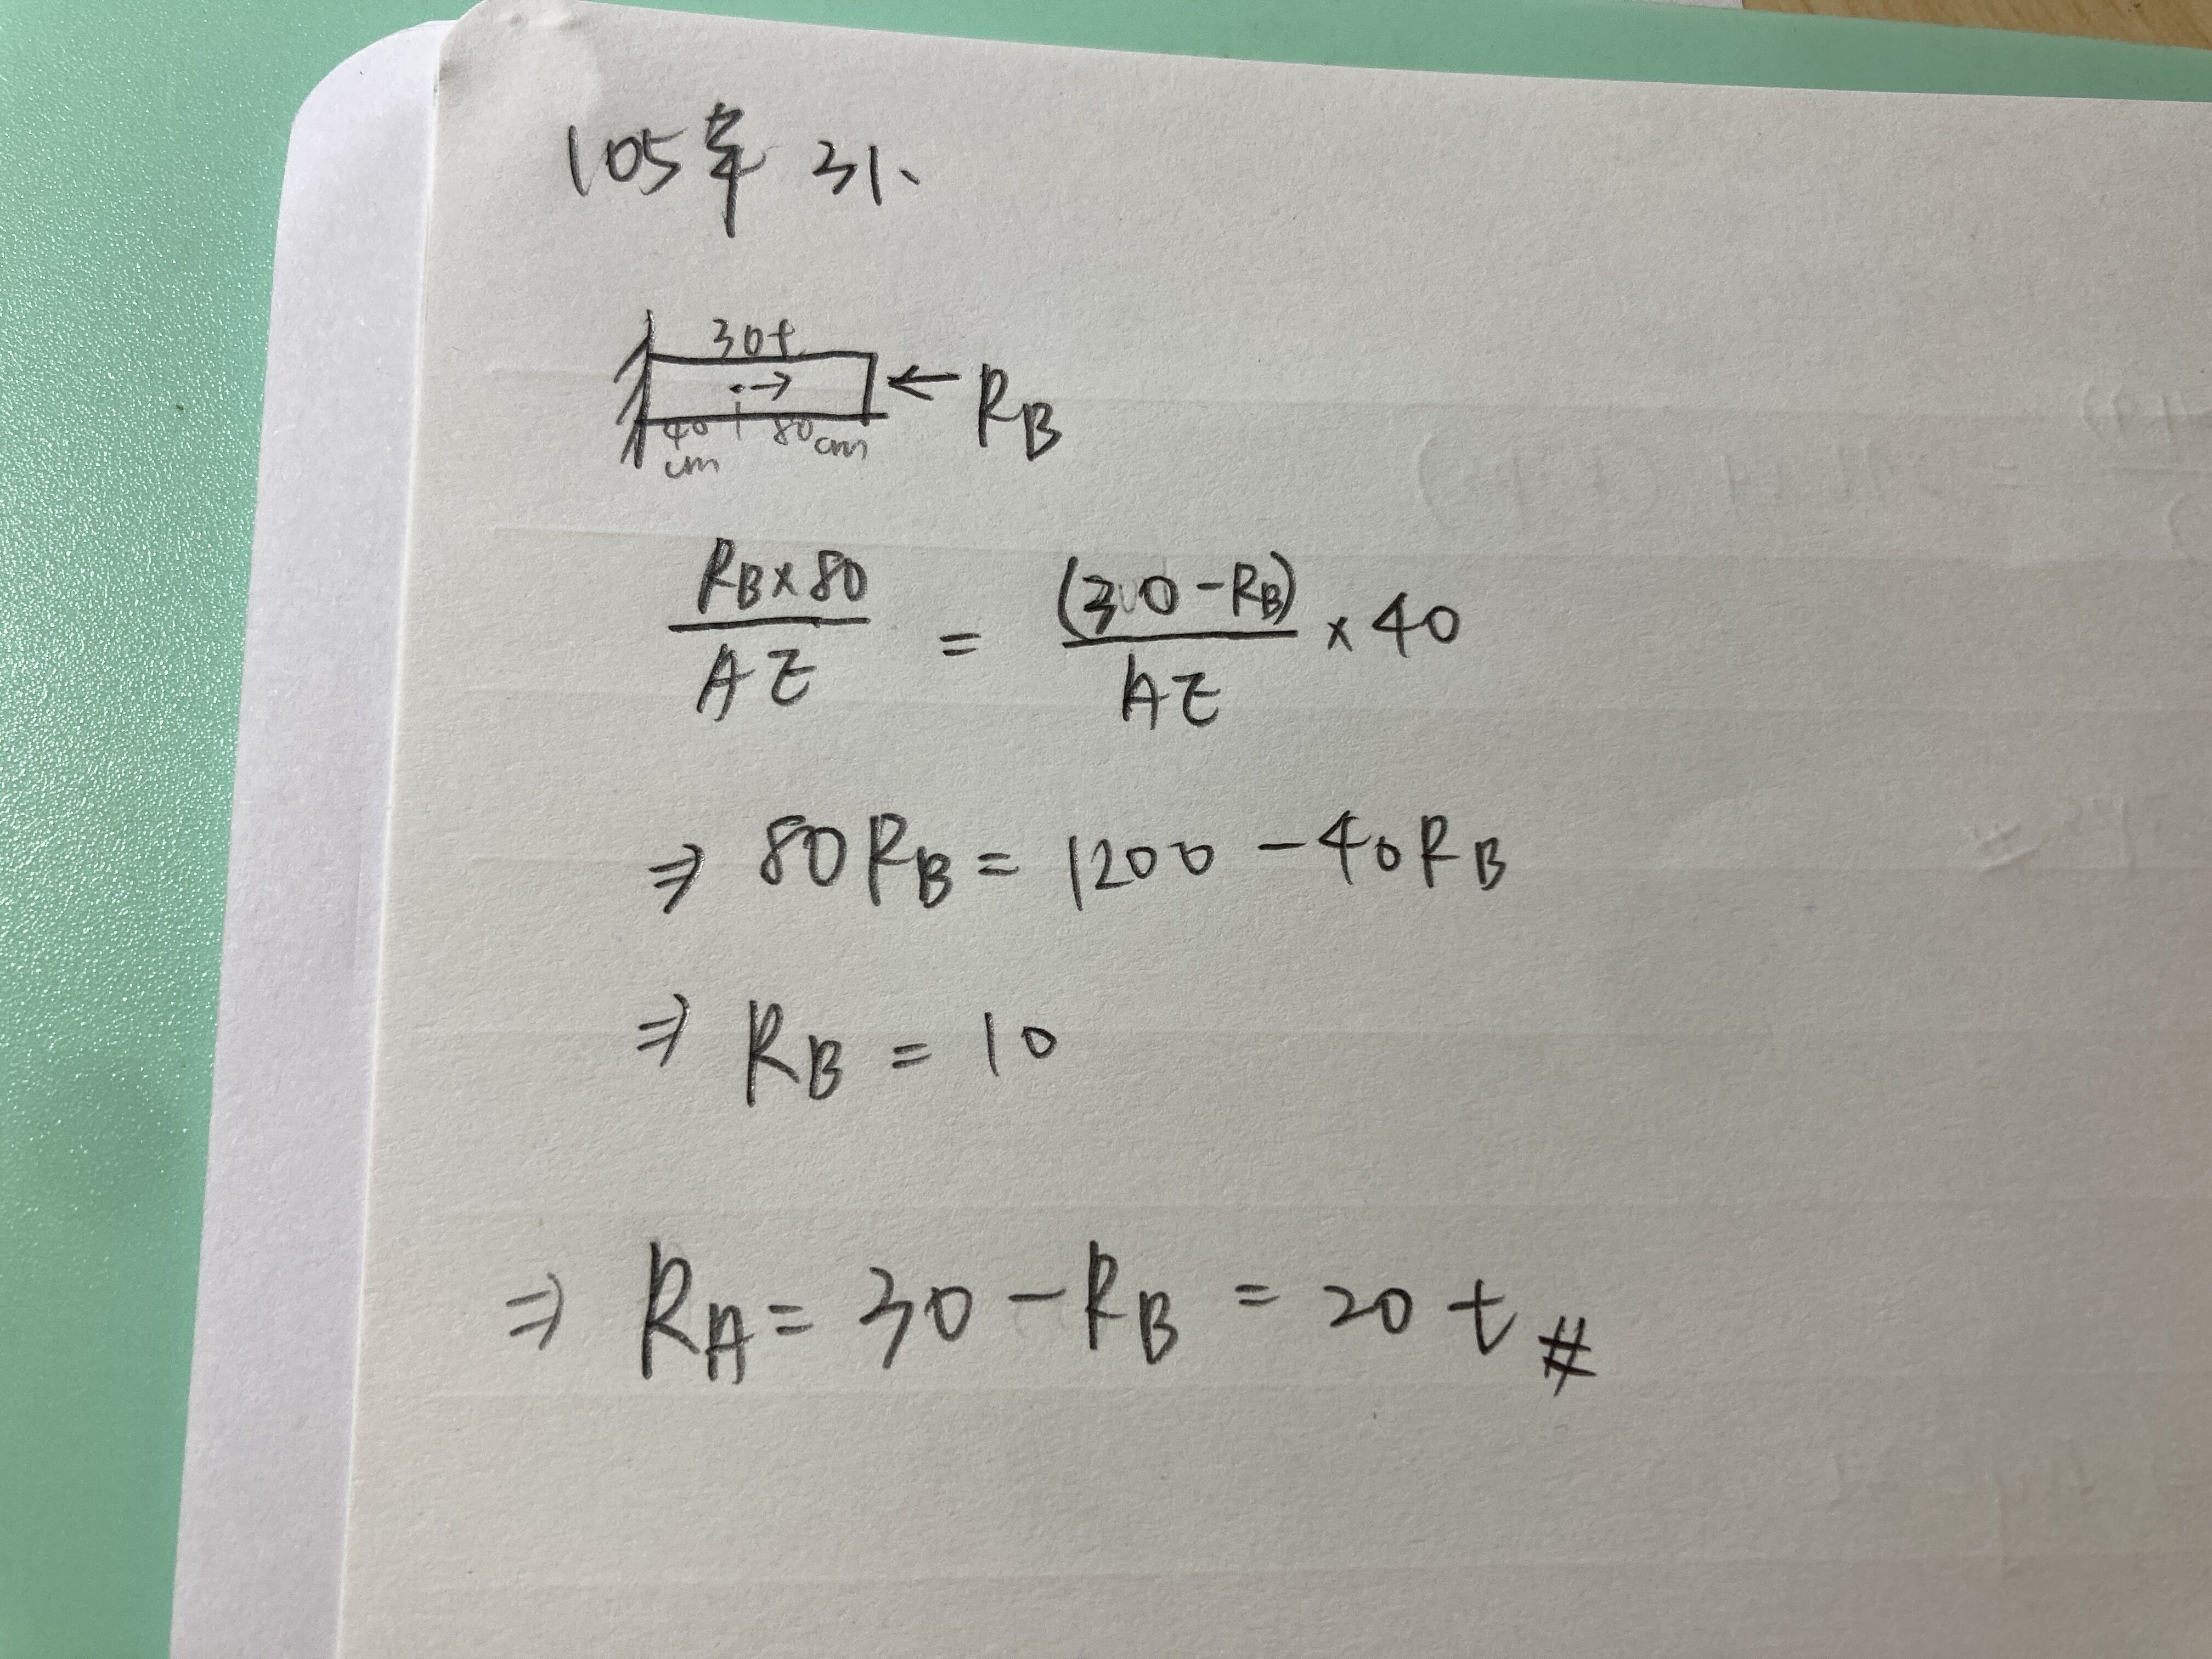 105年 31、
30t
40 cm 80cm ← RB
RB×80 / AE = (30-RB) / AE × 40
⇒ 80RB = 1200 - 40RB
⇒ RB = 10
⇒ RA = 30 - RB = 20 t #